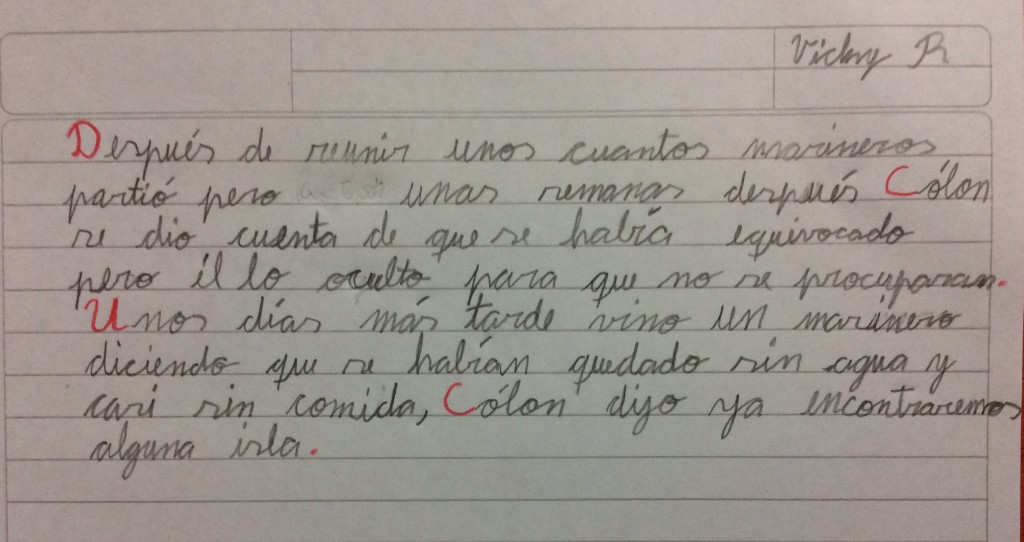 Vicky R
Después de reunir unos cuantos marineros
partió pero unas semanas después Cólon
se dio cuenta de que se había equivocado
pero él lo oculto para que no se procuparan.
Unos días más tarde vino un marinero
diciendo que se habían quedado sin agua y
casi sin comida, Cólon dijo ya encontraremos
alguna isla.